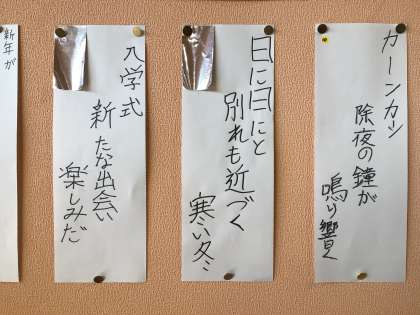 カーンカーン
除夜の鐘が
鳴り響く
日に日にと
別れも近づく
寒い冬
入学式
新たな出会い
楽しみだ
新年が